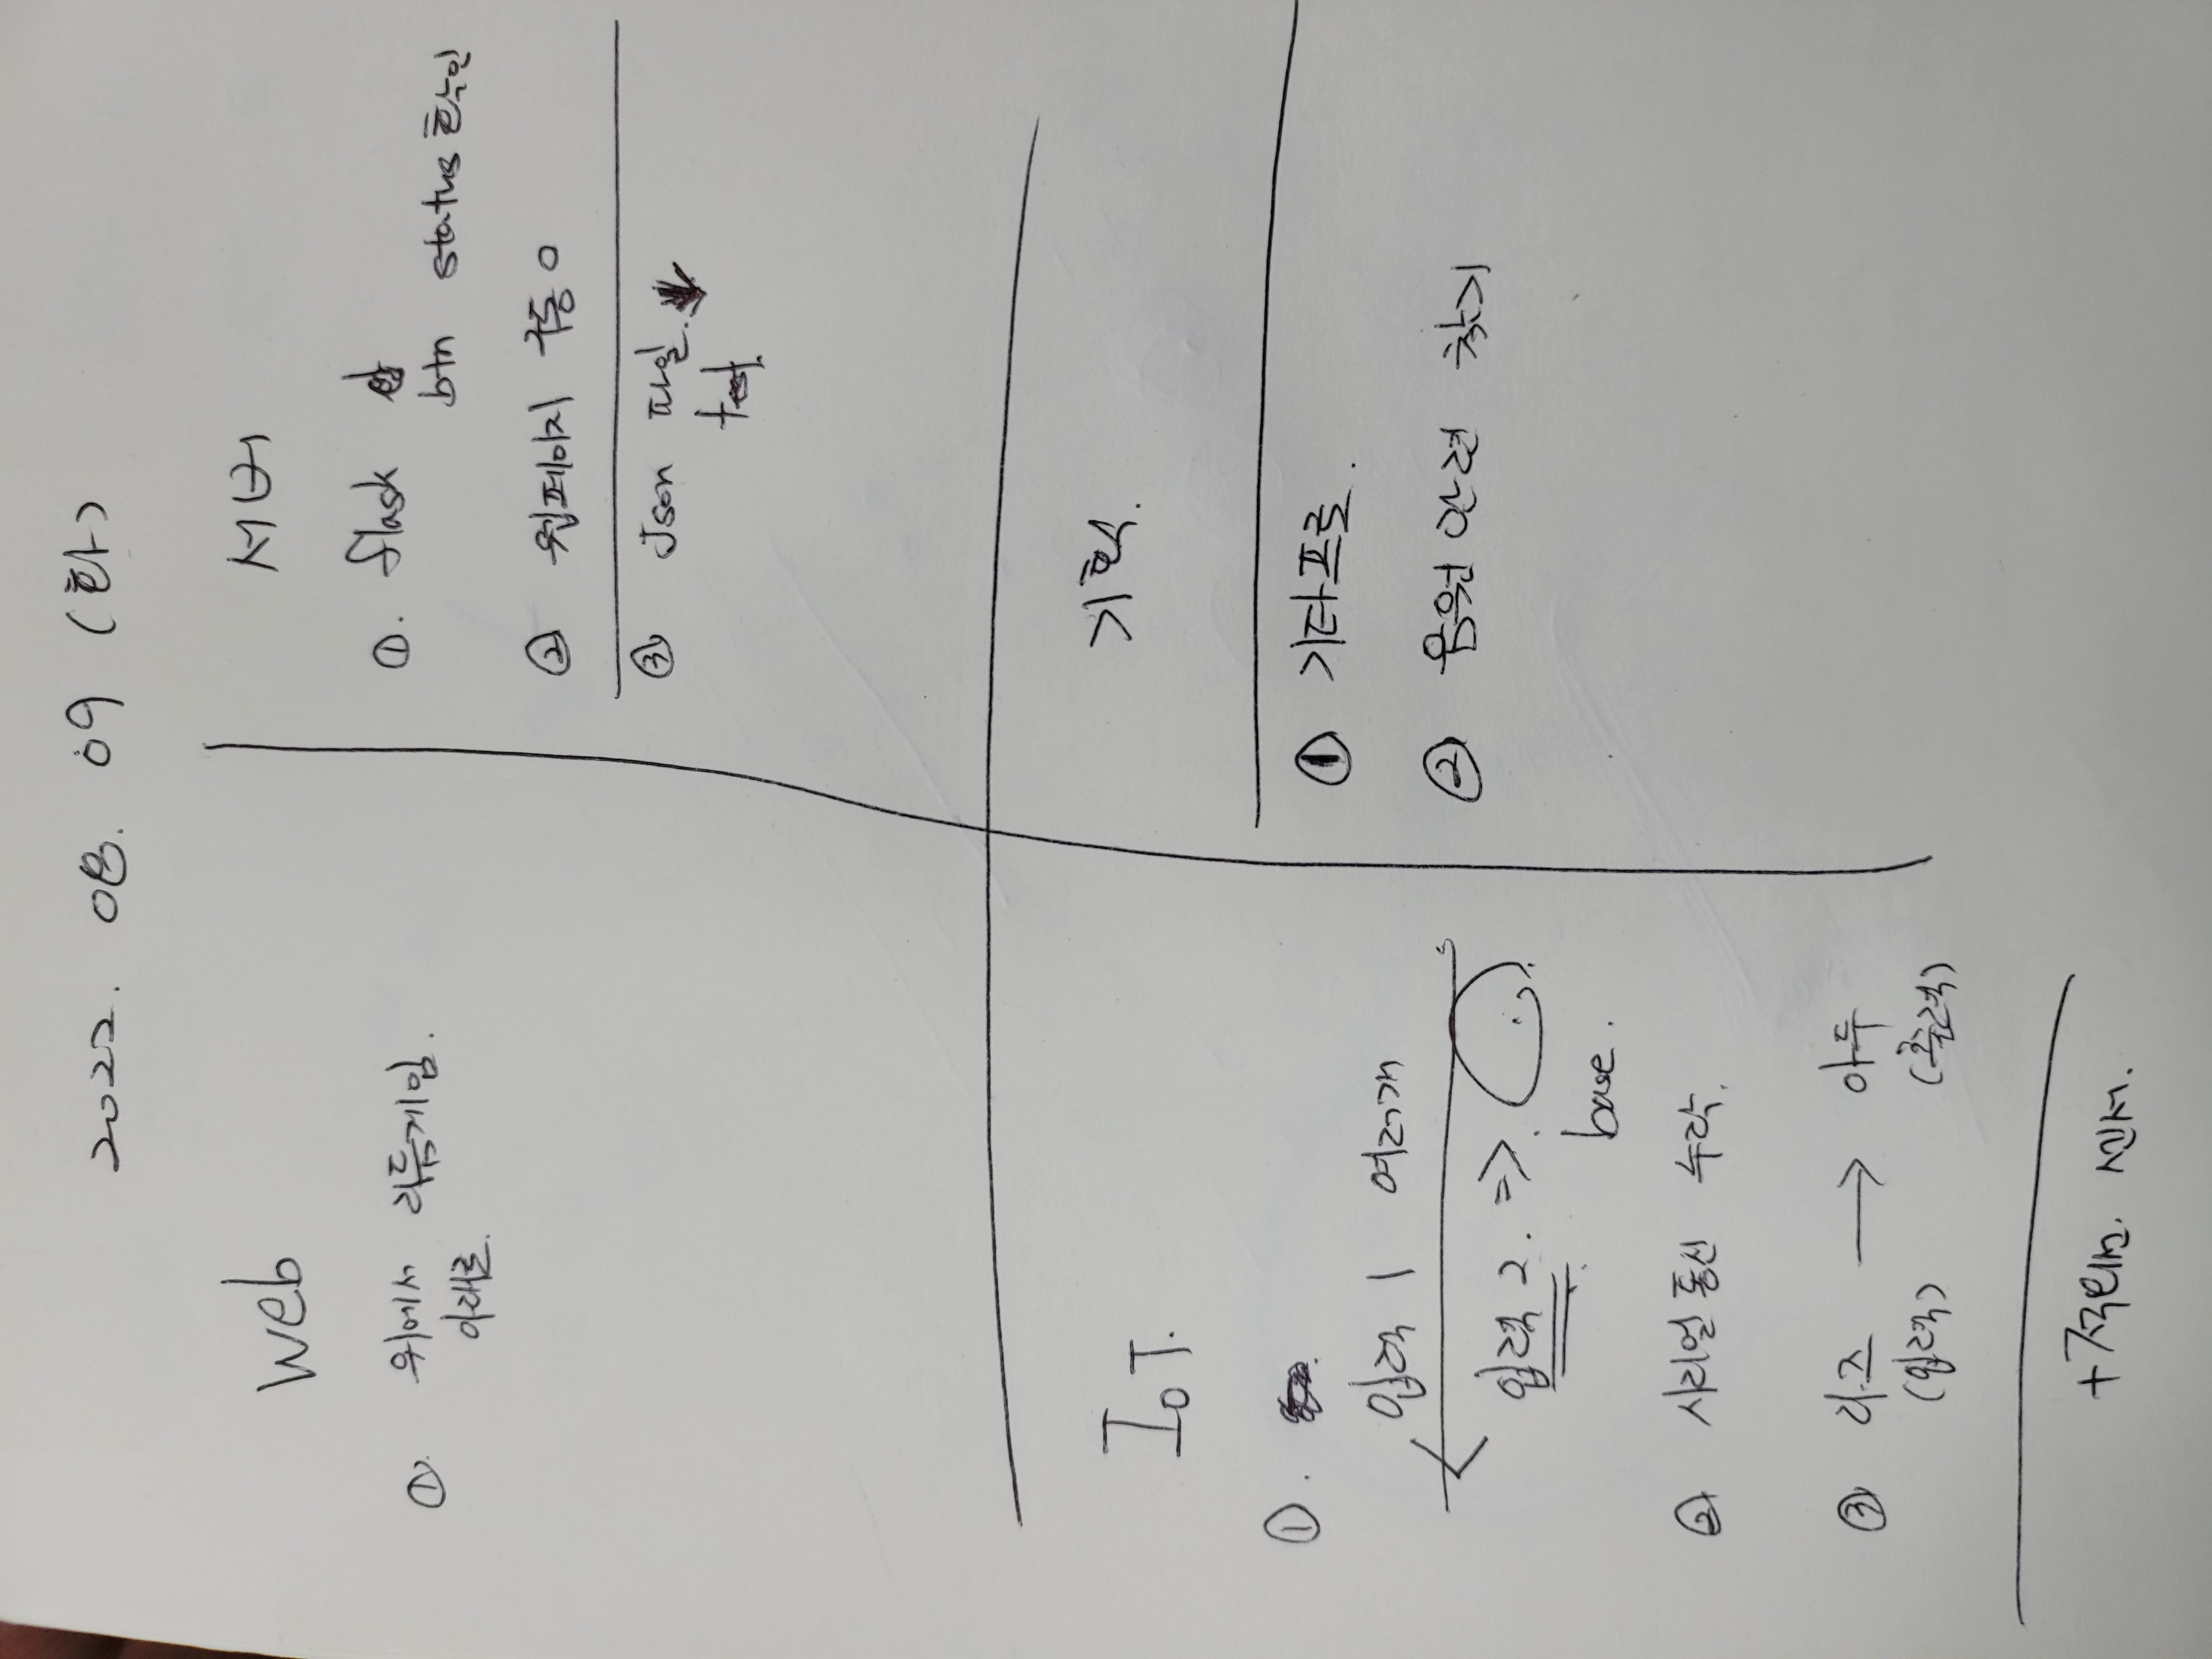 2022. 08. 09 (화)
Web
① 위에서 리듬게임.
아래로.
서버
①. flask
btn status 확인
② 웹페이지 구동 O
③ Json 파일.
test.
IoT.
①.
입력 1 여러개
입력 2. =>
base.
② 시리얼 통신 수락.
③ 라즈 → 아두
(입력) (출력)
+ 적외선. 센서.
기획.
① 기타프로.
② 음원 관련 찾기